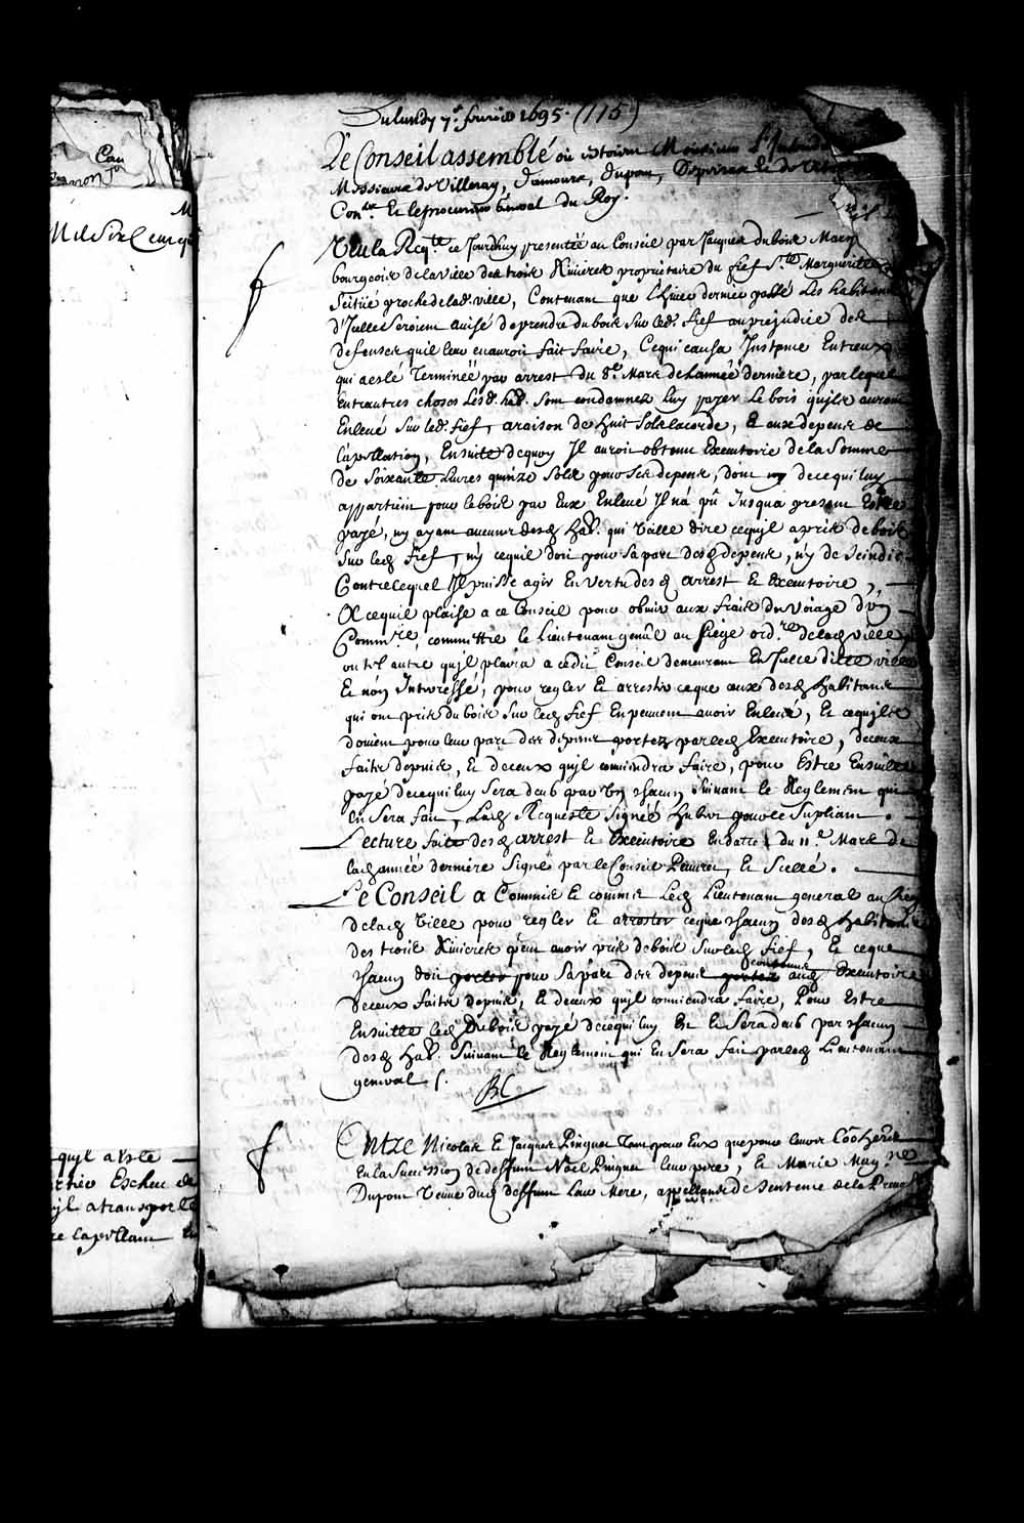 Can
M
quil a este
Du lundy 7.e feurier 1695. (115)
Le Conseil assemblé ou estoient Monsieur L'Intend
Messieurs de Villeray, Damours, Dupont, Depeiras et de
Con.ers Et le procureur general du Roy.
Veu la Req.te ce Jourdhuy presentée au Conseil par Jacques dubois March
bourgeois de la ville des trois Rivieres proprietaire du fief S.te Marguerite
scitué proche de lad. ville, Contenant que Lhiuer dernier passé Les habitans
d'Jcelle seroient auisé de prendre du bois sur led. fief au prejudice des
defenses quil leur en auroit fait faire, Ce qui causa Instance Entreux
qui a esté Terminée par arrest du 8.e Mars de Lannée derniere, par lequel
entrautres choses Lesd. hab. sont condamnez luy payer Le bois quils auroient
Enleué sur led. fief, a raison de huit sols la corde, Et aux depens de
L'apellation, Ensuite de quoy Il auroit obtenu Executoire de la Somme
de Soixante Liures quinze sols pour ses depens, dont ny de ce qui luy
appartient pour le bois par Eux Enleué Il n'a pû Jusqu'a present Estre
payé, ny ayant aucun desd. hab. qui veille dire ce quil a pris de bois
sur led. fief, ny ce quil doit pour sa part desd. depens, ny de scindic
Contre lequel Il puisse agir En vertu desd. arrest Et Executoire,
A ce quil plaise a ce Conseil pour obuier aux frais du voiage d'vn
Comm.re, committre le Lieutenant gen͞al au siege ord.re de lad. ville
ou tel autre quil plaira a cedit Conseil demeurant En Jcelle ditte ville
Et non Interessé, pour regler Et arrester ce que ceux desd. habitans
qui ont pris du bois sur led. fief En peuuent auoir Enleué, Et ce quils
doiuent pour leur part des depens portez par led. Executoire, de ceux
faits depuis, Et de ceux quil conuiendra faire, pour Estre Ensuitte
payé de ce qui luy sera deub par vn chacun suiuant le Reglement qui
En sera fait, Lad. Requeste signée hubert pour le supliant.
Lecture faite desd. arrest Et Executoire En datte du 11.e Mars de
lad. année derniere signé par le Conseil Peuuret, Et scellé.
Le Conseil a Commis Et commet Led. Lieutenant general au siege
de lad. ville pour regler Et arrester ce que chacun desd. habitans
des trois Rivieres peut auoir pris de bois sur led. fief, Et ce que
chacun doit porter pour sa part des depens contenus aud. Executoire
de ceux faits depuis, Et de ceux quil conuiendra faire, Pour Estre
Ensuitte led. Dubois payé de ce qui luy Est Et sera deub par chacun
desd. hab. suiuant le Reglement qui En sera fait par led. Lieutenant
general.
BC
Entre Nicolas Et Jacques Pinguet Tant pour Eux que pour leurs Coheritiers
En la succession de deffunt Noël Pinguet leur pere, Et Marie Mag.ne
Dupont veuue dud. deffunt Leur Mere, appellants de sentence de la